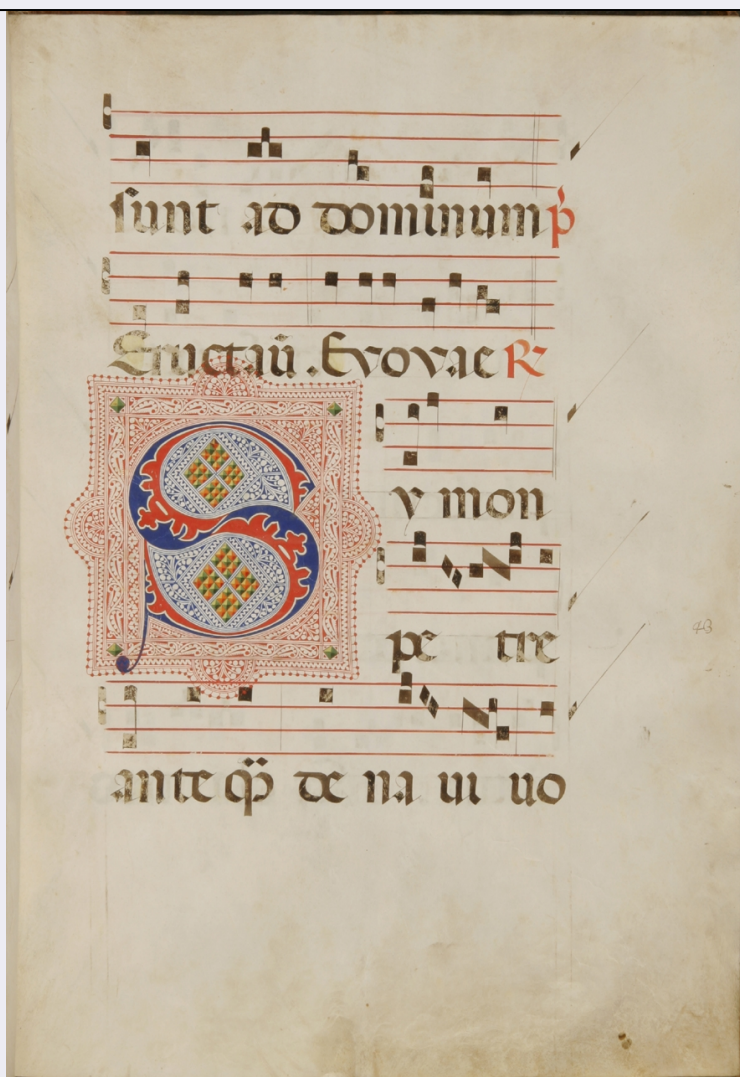 sunt ad dominum p̄
Eructaū . Evovae R
Sy mon
pe tre
ante q̄ƶ de na ui uo
43